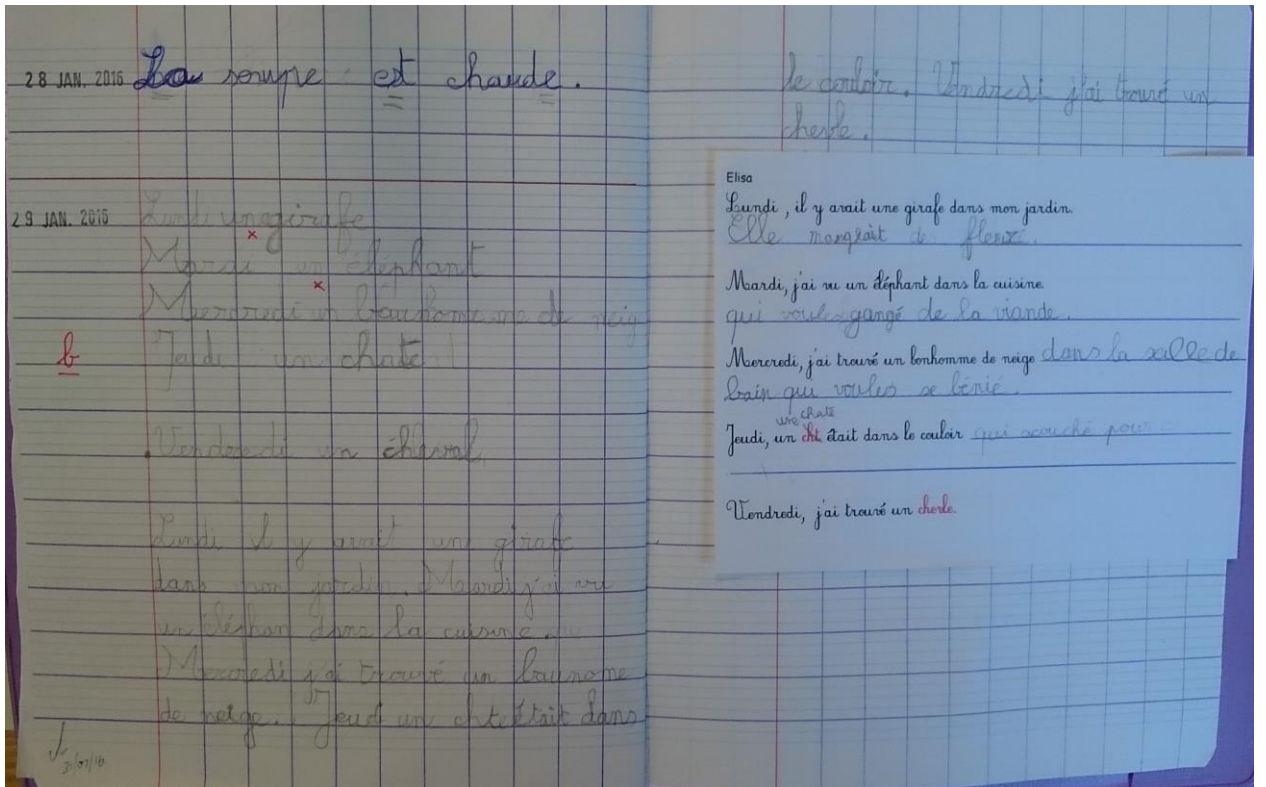 28 JAN. 2016 La soupe est chaude.
29 JAN. 2016 Lundi une girafe
Mardi un éléphant
Mercredi un bauhomme de neig
b Jeudi un chate
Vendredi un chaval
Lundi il y avait une girafe
dans mon jardin. Mardi j'ai vu
un éléphan dans la cuisine.
Mercredi j'ai trouvé un baunome
de neige. Jeudi un chte était dans
le couloir. Vendredi j'ai trouvé un
chevle.
Elisa
Lundi, il y avait une girafe dans mon jardin.
Elle mangeait de
Mardi, j'ai vu un éléphant dans la cuisine
qui voules gangé de la viande.
Mercredi, j'ai trouvé un bonhomme de neige dans la salle de
bain qui voules se
une chate
Jeudi, un cht était dans le couloir qui acouché pour
Vendredi, j'ai trouvé un chevle.